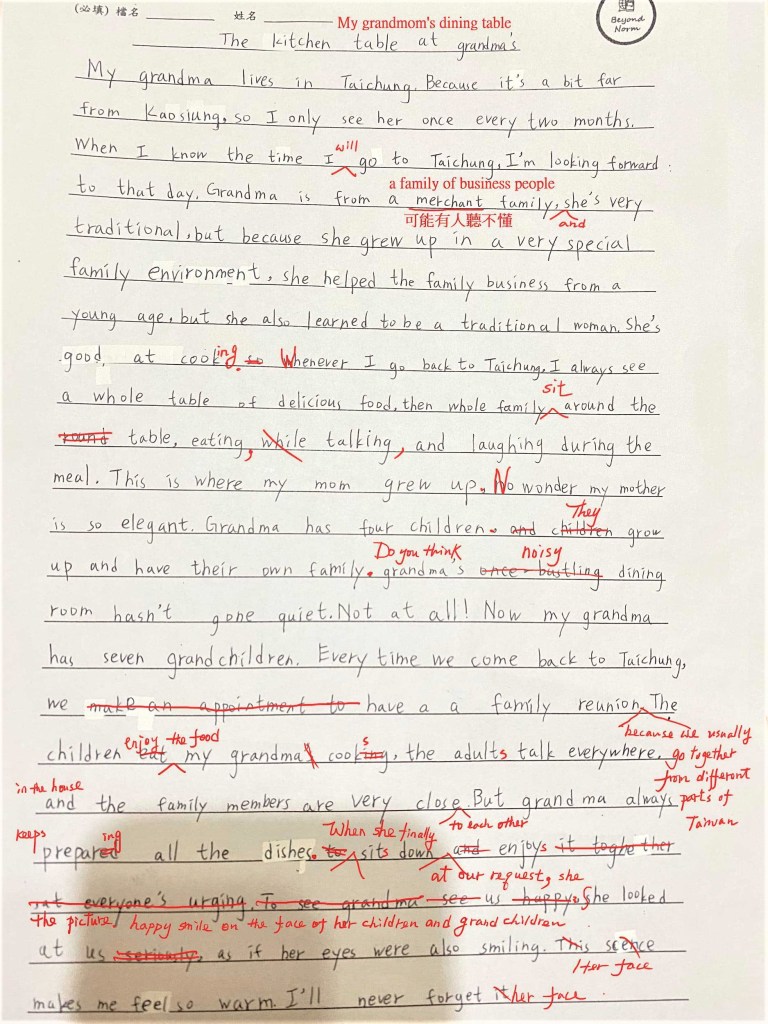 (必填) 檔名 姓名 My grandmom's dining table
Beyond
Norm
The kitchen table at grandma's
My grandma lives in Taichung. Because it's a bit far
from Kaosiung, so I only see her once every two months.
will
When I know the time I go to Taichung, I'm looking forward
a family of business people
to that day. Grandma is from a merchant family, she's very
可能有人聽不懂 and
traditional, but because she grew up in a very special
family environment, she helped the family business from a
young age, but she also learned to be a traditional woman. She's
good at cooking. so Whenever I go back to Taichung, I always see
sit
a whole table of delicious food, then whole family around the
round table, eating, while talking, and laughing during the
meal. This is where my mom grew up. No wonder my mother
They
is so elegant. Grandma has four children. and children grow
Do you think noisy
up and have their own family. grandma's once-bustling dining
room hasn't gone quiet. Not at all! Now my grandma
has seven grandchildren. Every time we come back to Taichung,
we make an appointment to have a a family reunion. The
enjoy the food s because we usually
children eat my grandma's cooking, the adults talk everywhere, go together
in the house from different
and the family members are very close. But grandma always parts of
Taiwan
keeps ing When she finally to each other
prepared all the dishes. to sits down and enjoys it togher ther
at our request, she
at everyone's urging. To see grandma see us happy. She looked
the picture/ happy smile on the face of her children and grand children
at us seriously, as if her eyes were also smiling. This scence
/ her face
makes me feel so warm. I'll never forget it her face.